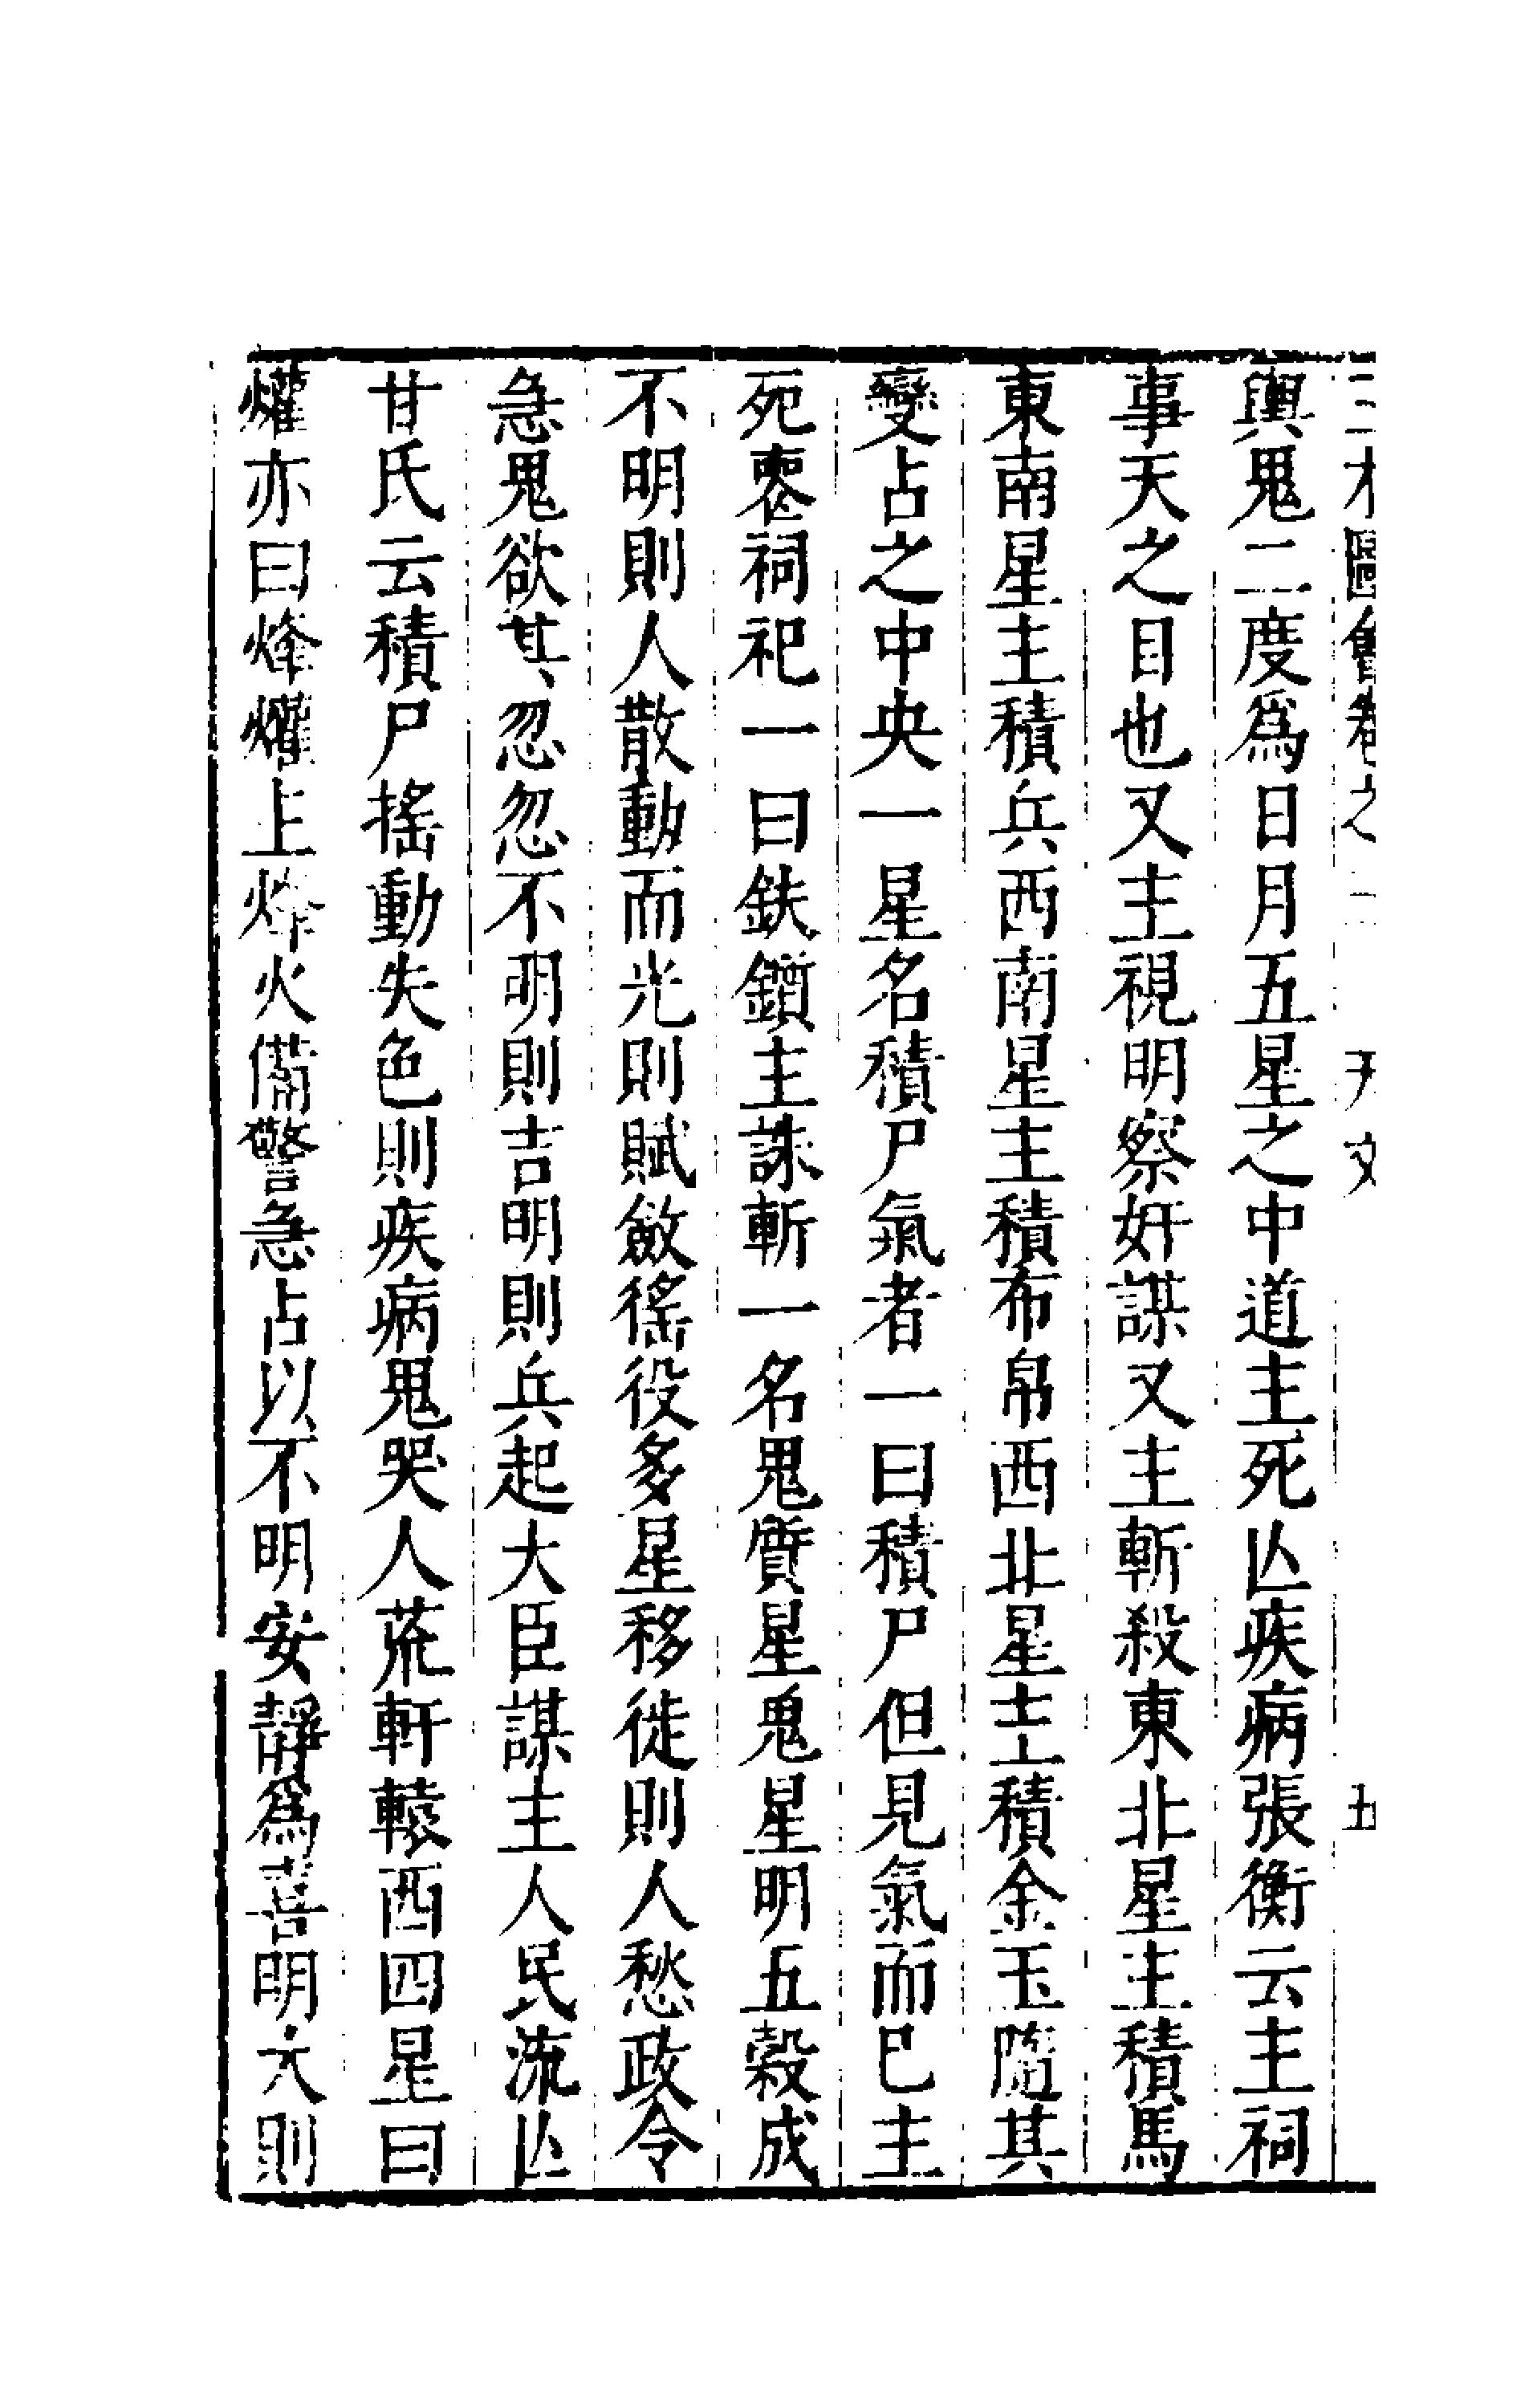 三才圖會卷之二 天文 五
輿鬼二度爲日月五星之中道主死亾疾病張衡云主祠
事天之目也又主視明察奸謀又主斬殺東北星主積馬
東南星主積兵西南星主積布帛西北星主積金玉隨其
變占之中央一星名積尸氣者一曰積尸但見氣而已主
死喪祠祀一曰鈇鑕主誅斬一名鬼質星鬼星明五穀成
不明則人散動而光則賦斂徭役多星移徙則人愁政令
急鬼欲其忽忽不明則吉明則兵起大臣謀主人民流亾
甘氏云積尸搖動失色則疾病鬼哭人荒軒轅西四星曰
爟亦曰烽爟上烽火備警急占以不明安靜爲喜明大則